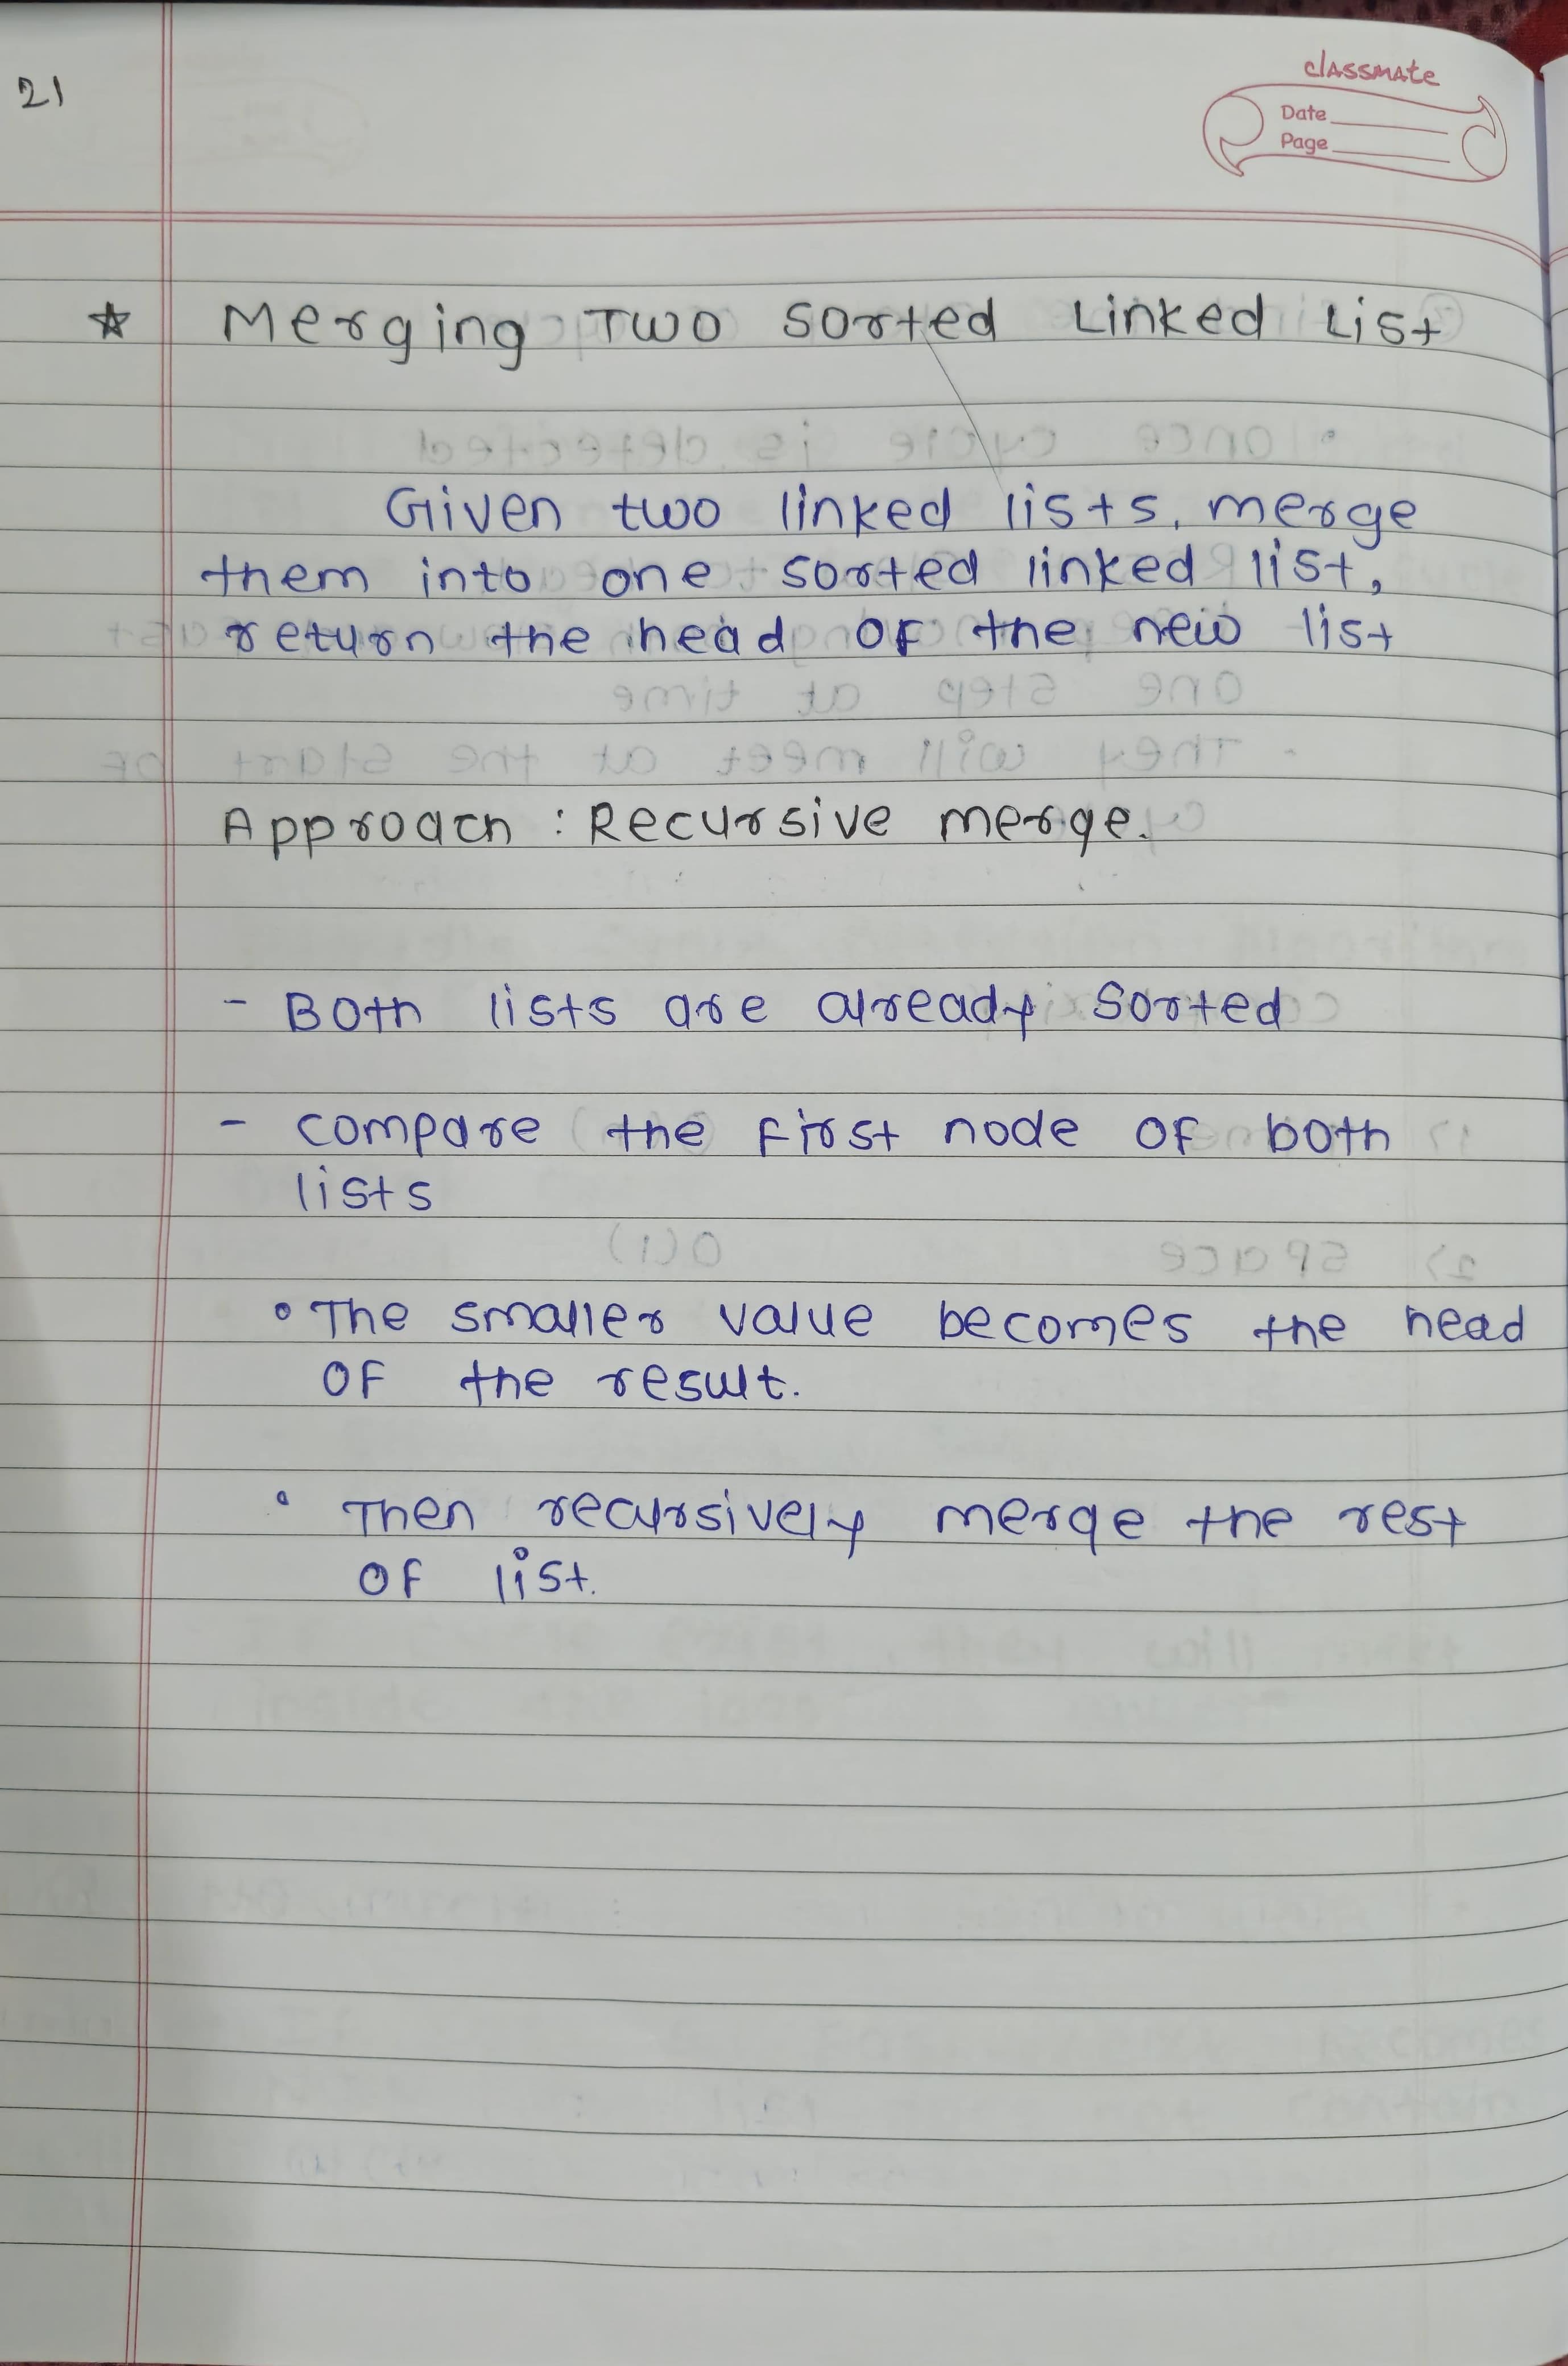 21
classmate
Date
Page
☆ Merging Two Sorted Linked List
Given two linked lists, merge
them into one sorted linked list,
return the head of the new list
Approach : Recursive merge.
- Both lists are already sorted
- compare the first node of both
lists
• The smaller value becomes the head
of the result.
• Then recursively merge the rest
of list.